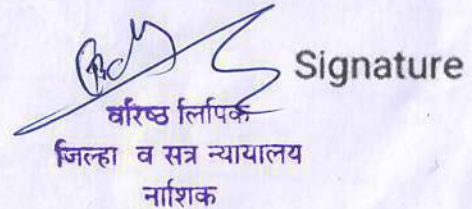 Signature
वरिष्ठ लिपिक
जिल्हा व सत्र न्यायालय
नाशिक